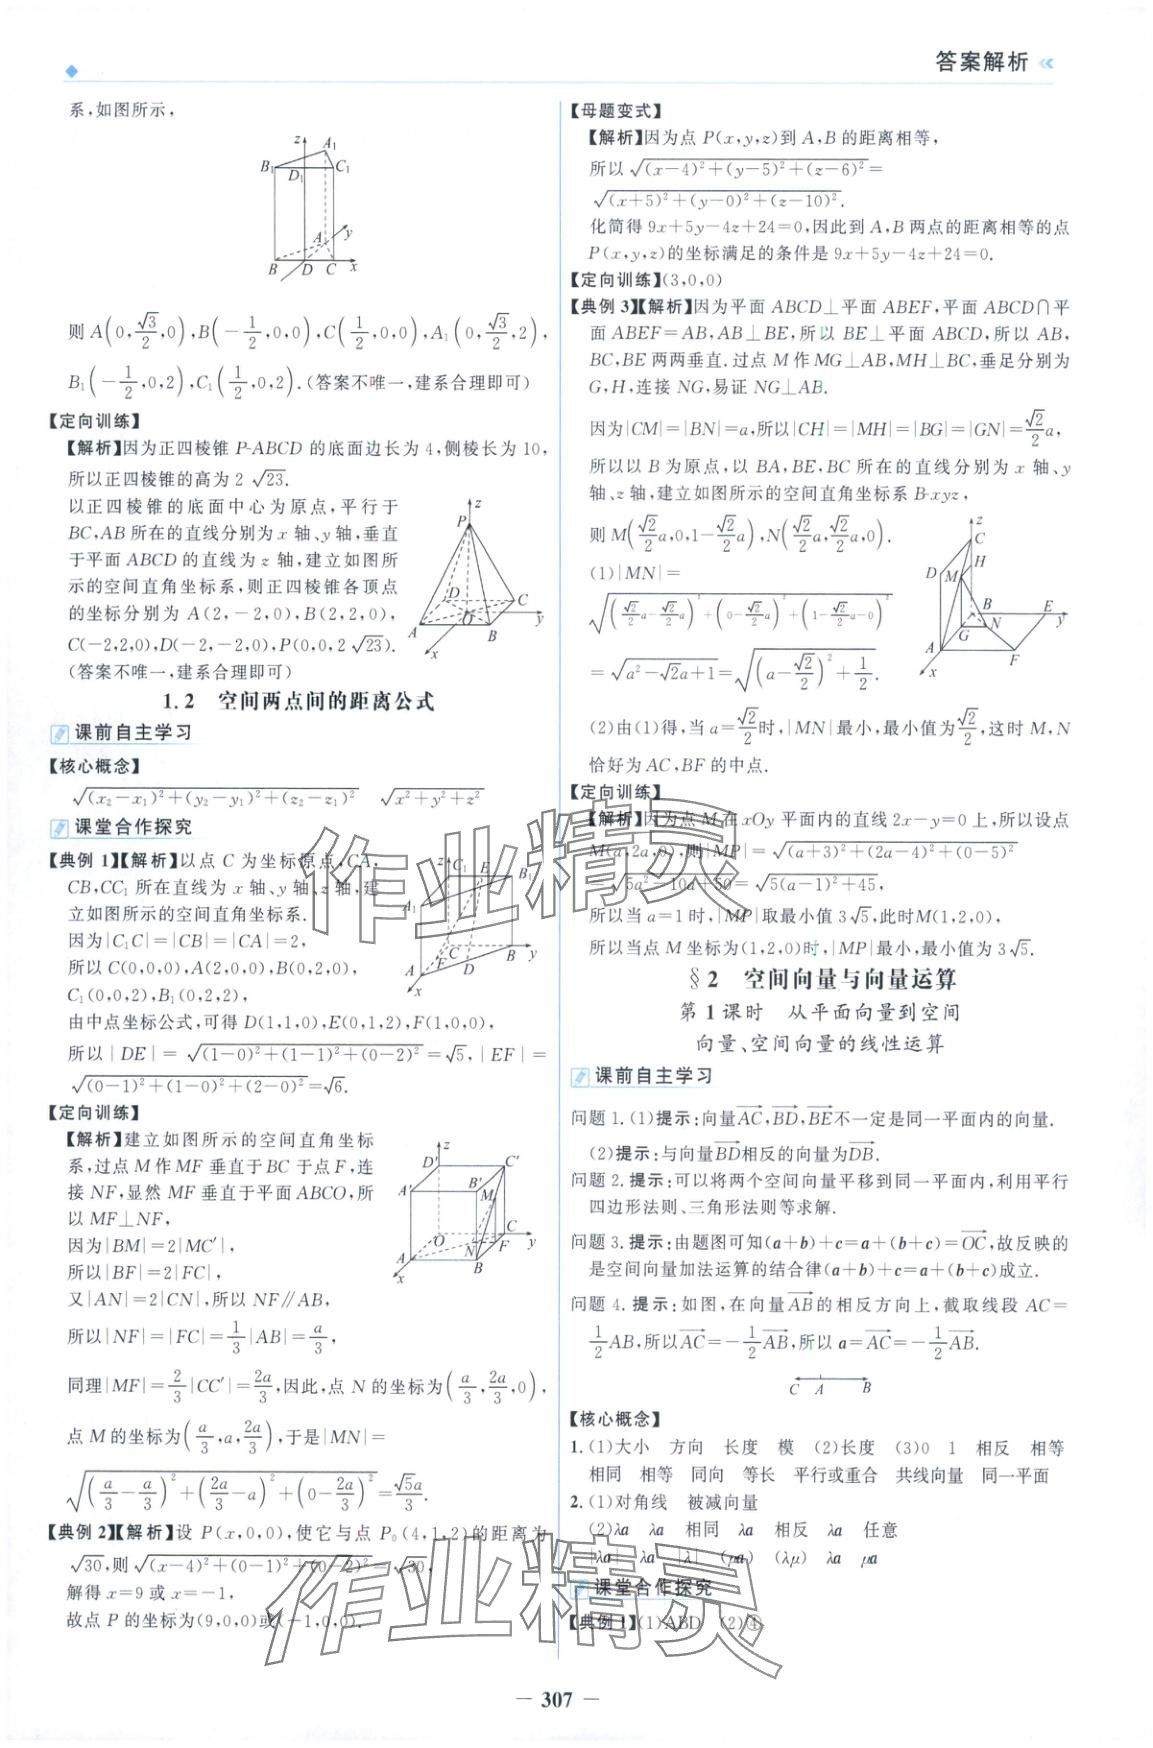 答案解析
系,如图所示,
z
A₁
B₁
D₁
C₁
A
y
B
D
C
x
则 A(0,√3/2,0),B(-1/2,0,0),C(1/2,0,0),A₁(0,√3/2,2),
B₁(-1/2,0,2),C₁(1/2,0,2).(答案不唯一,建系合理即可)
【定向训练】
【解析】因为正四棱锥 P-ABCD 的底面边长为 4,侧棱长为 10,
所以正四棱锥的高为 2√23.
以正四棱锥的底面中心为原点,平行于
BC,AB 所在的直线分别为 x 轴、y 轴,垂直
于平面 ABCD 的直线为 z 轴,建立如图所
示的空间直角坐标系,则正四棱锥各顶点
的坐标分别为 A(2,-2,0),B(2,2,0),
C(-2,2,0),D(-2,-2,0),P(0,0,2√23).
(答案不唯一,建系合理即可)
z
P
D
C
O
y
A
B
x
1.2 空间两点间的距离公式
课前自主学习
【核心概念】
√((x₂-x₁)²+(y₂-y₁)²+(z₂-z₁)²) √(x²+y²+z²)
课堂合作探究
【典例 1】【解析】以点 C 为坐标原点,CA,
CB,CC₁ 所在直线为 x 轴、y 轴、z 轴,建
立如图所示的空间直角坐标系.
因为|C₁C|=|CB|=|CA|=2,
所以 C(0,0,0),A(2,0,0),B(0,2,0),
C₁(0,0,2),B₁(0,2,2),
z
C₁
E
B₁
A₁
C
B
y
A
F
D
x
由中点坐标公式,可得 D(1,1,0),E(0,1,2),F(1,0,0),
所以|DE|=√((1-0)²+(1-1)²+(0-2)²)=√5,|EF|=
√((0-1)²+(1-0)²+(2-0)²)=√6.
【定向训练】
【解析】建立如图所示的空间直角坐标
系,过点 M 作 MF 垂直于 BC 于点 F,连
接 NF,显然 MF 垂直于平面 ABCO,所
以 MF⊥NF,
因为|BM|=2|MC′|,
所以|BF|=2|FC|,
又|AN|=2|CN|,所以 NF∥AB,
所以|NF|=|FC|=1/3|AB|=a/3,
z
D′
C′
A′
B′
M
O
C
y
N
F
A
B
x
同理|MF|=2/3|CC′|=2a/3,因此,点 N 的坐标为(a/3,2a/3,0),
点 M 的坐标为(a/3,a,2a/3),于是|MN|=
√((a/3-a/3)²+(2a/3-a)²+(0-2a/3)²)=√5a/3.
【典例 2】【解析】设 P(x,0,0),使它与点 P₀(4,1,2)的距离为
√30,则√((x-4)²+(0-1)²+(0-2)²)=√30,
解得 x=9 或 x=-1,
故点 P 的坐标为(9,0,0)或(-1,0,0).
【母题变式】
【解析】因为点 P(x,y,z)到 A,B 的距离相等,
所以√((x-4)²+(y-5)²+(z-6)²)=
√((x+5)²+(y-0)²+(z-10)²).
化简得 9x+5y-4z+24=0,因此到 A,B 两点的距离相等的点
P(x,y,z)的坐标满足的条件是 9x+5y-4z+24=0.
【定向训练】(3,0,0)
【典例 3】【解析】因为平面 ABCD⊥平面 ABEF,平面 ABCD∩平
面 ABEF=AB,AB⊥BE,所以 BE⊥平面 ABCD,所以 AB,
BC,BE 两两垂直.过点 M 作 MG⊥AB,MH⊥BC,垂足分别为
G,H,连接 NG,易证 NG⊥AB.
因为|CM|=|BN|=a,所以|CH|=|MH|=|BG|=|GN|=√2/2a,
所以以 B 为原点,以 BA,BE,BC 所在的直线分别为 x 轴、y
轴、z 轴,建立如图所示的空间直角坐标系 B-xyz,
则 M(√2/2a,0,1-√2/2a),N(√2/2a,√2/2a,0).
(1)|MN|=
√((√2/2a-√2/2a)²+(0-√2/2a)²+(1-√2/2a-0)²)
=√(a²-√2a+1)=√((a-√2/2)²+1/2).
z
C
H
D
M
B
E
G
N
y
A
F
x
(2)由(1)得,当 a=√2/2时,|MN|最小,最小值为√2/2,这时 M,N
恰好为 AC,BF 的中点.
【定向训练】
【解析】因为点 M 在 xOy 平面内的直线 2x-y=0 上,所以设点
M(a,2a,0),则|MP|=√((a+3)²+(2a-4)²+(0-5)²)
=√(5a²-10a+50)=√(5(a-1)²+45),
所以当 a=1 时,|MP|取最小值 3√5,此时M(1,2,0),
所以当点 M 坐标为(1,2,0)时,|MP|最小,最小值为 3√5.
§2 空间向量与向量运算
第 1 课时 从平面向量到空间
向量、空间向量的线性运算
课前自主学习
问题 1.(1)提示:向量AC→,BD→,BE→不一定是同一平面内的向量.
(2)提示:与向量BD→相反的向量为DB→.
问题 2.提示:可以将两个空间向量平移到同一平面内,利用平行
四边形法则、三角形法则等求解.
问题 3.提示:由题图可知(a+b)+c=a+(b+c)=OC→,故反映的
是空间向量加法运算的结合律(a+b)+c=a+(b+c)成立.
问题 4.提示:如图,在向量AB→的相反方向上,截取线段 AC=
1/2AB,所以AC→=-1/2AB→,所以 a=AC→=-1/2AB→.
C A B
【核心概念】
1.(1)大小 方向 长度 模 (2)长度 (3)0 1 相反 相等
相同 相等 同向 等长 平行或重合 共线向量 同一平面
2.(1)对角线 被减向量
(2)λa λa 相同 λa 相反 λa 任意
|λa| λa |λ| (μa) (λμ) λa μa
课堂合作探究
【典例 1】(1)ABD (2)④
— 307 —
作业精灵
作业精灵